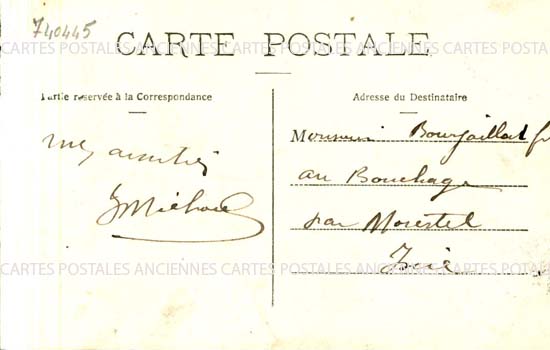 740445
CARTES POSTALES ANCIENNES CARTES POSTALES ANCIENNES CARTES POSTALES ANCIENNES
CARTE POSTALE
Partie réservée à la Correspondance
mes amitiés
Adresse du Destinataire
Monsieur Bourjaillat
au Bouchage
par Morestel
Isère
CARTES POSTALES ANCIENNES CARTES POSTALES ANCIENNES CARTES POSTALES ANCIENNES